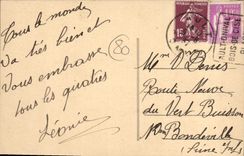 Tous le monde
va très bien et
Vous embrasse
tous les quatres
Léonie
80
15
Mr D Denis
Route Neuve
du Vert Buisson
Bondeville
(Seine Infre)